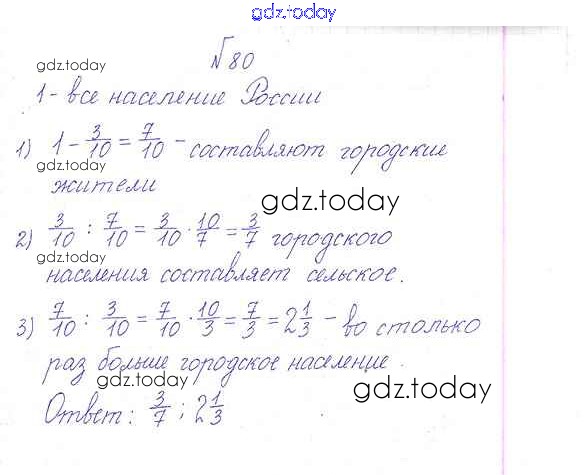 gdz.today
№80
gdz.today
1 - все население России
1) 1 - 3/10 = 7/10 - составляют городские
жители
gdz.today
2) 3/10 : 7/10 = 3/10 · 10/7 = 3/7 городского
gdz.today
населения составляет сельское.
3) 7/10 : 3/10 = 7/10 · 10/3 = 7/3 = 2 1/3 - во столько
раз больше городское население.
gdz.today
gdz.today
Ответ: 3/7 ; 2 1/3